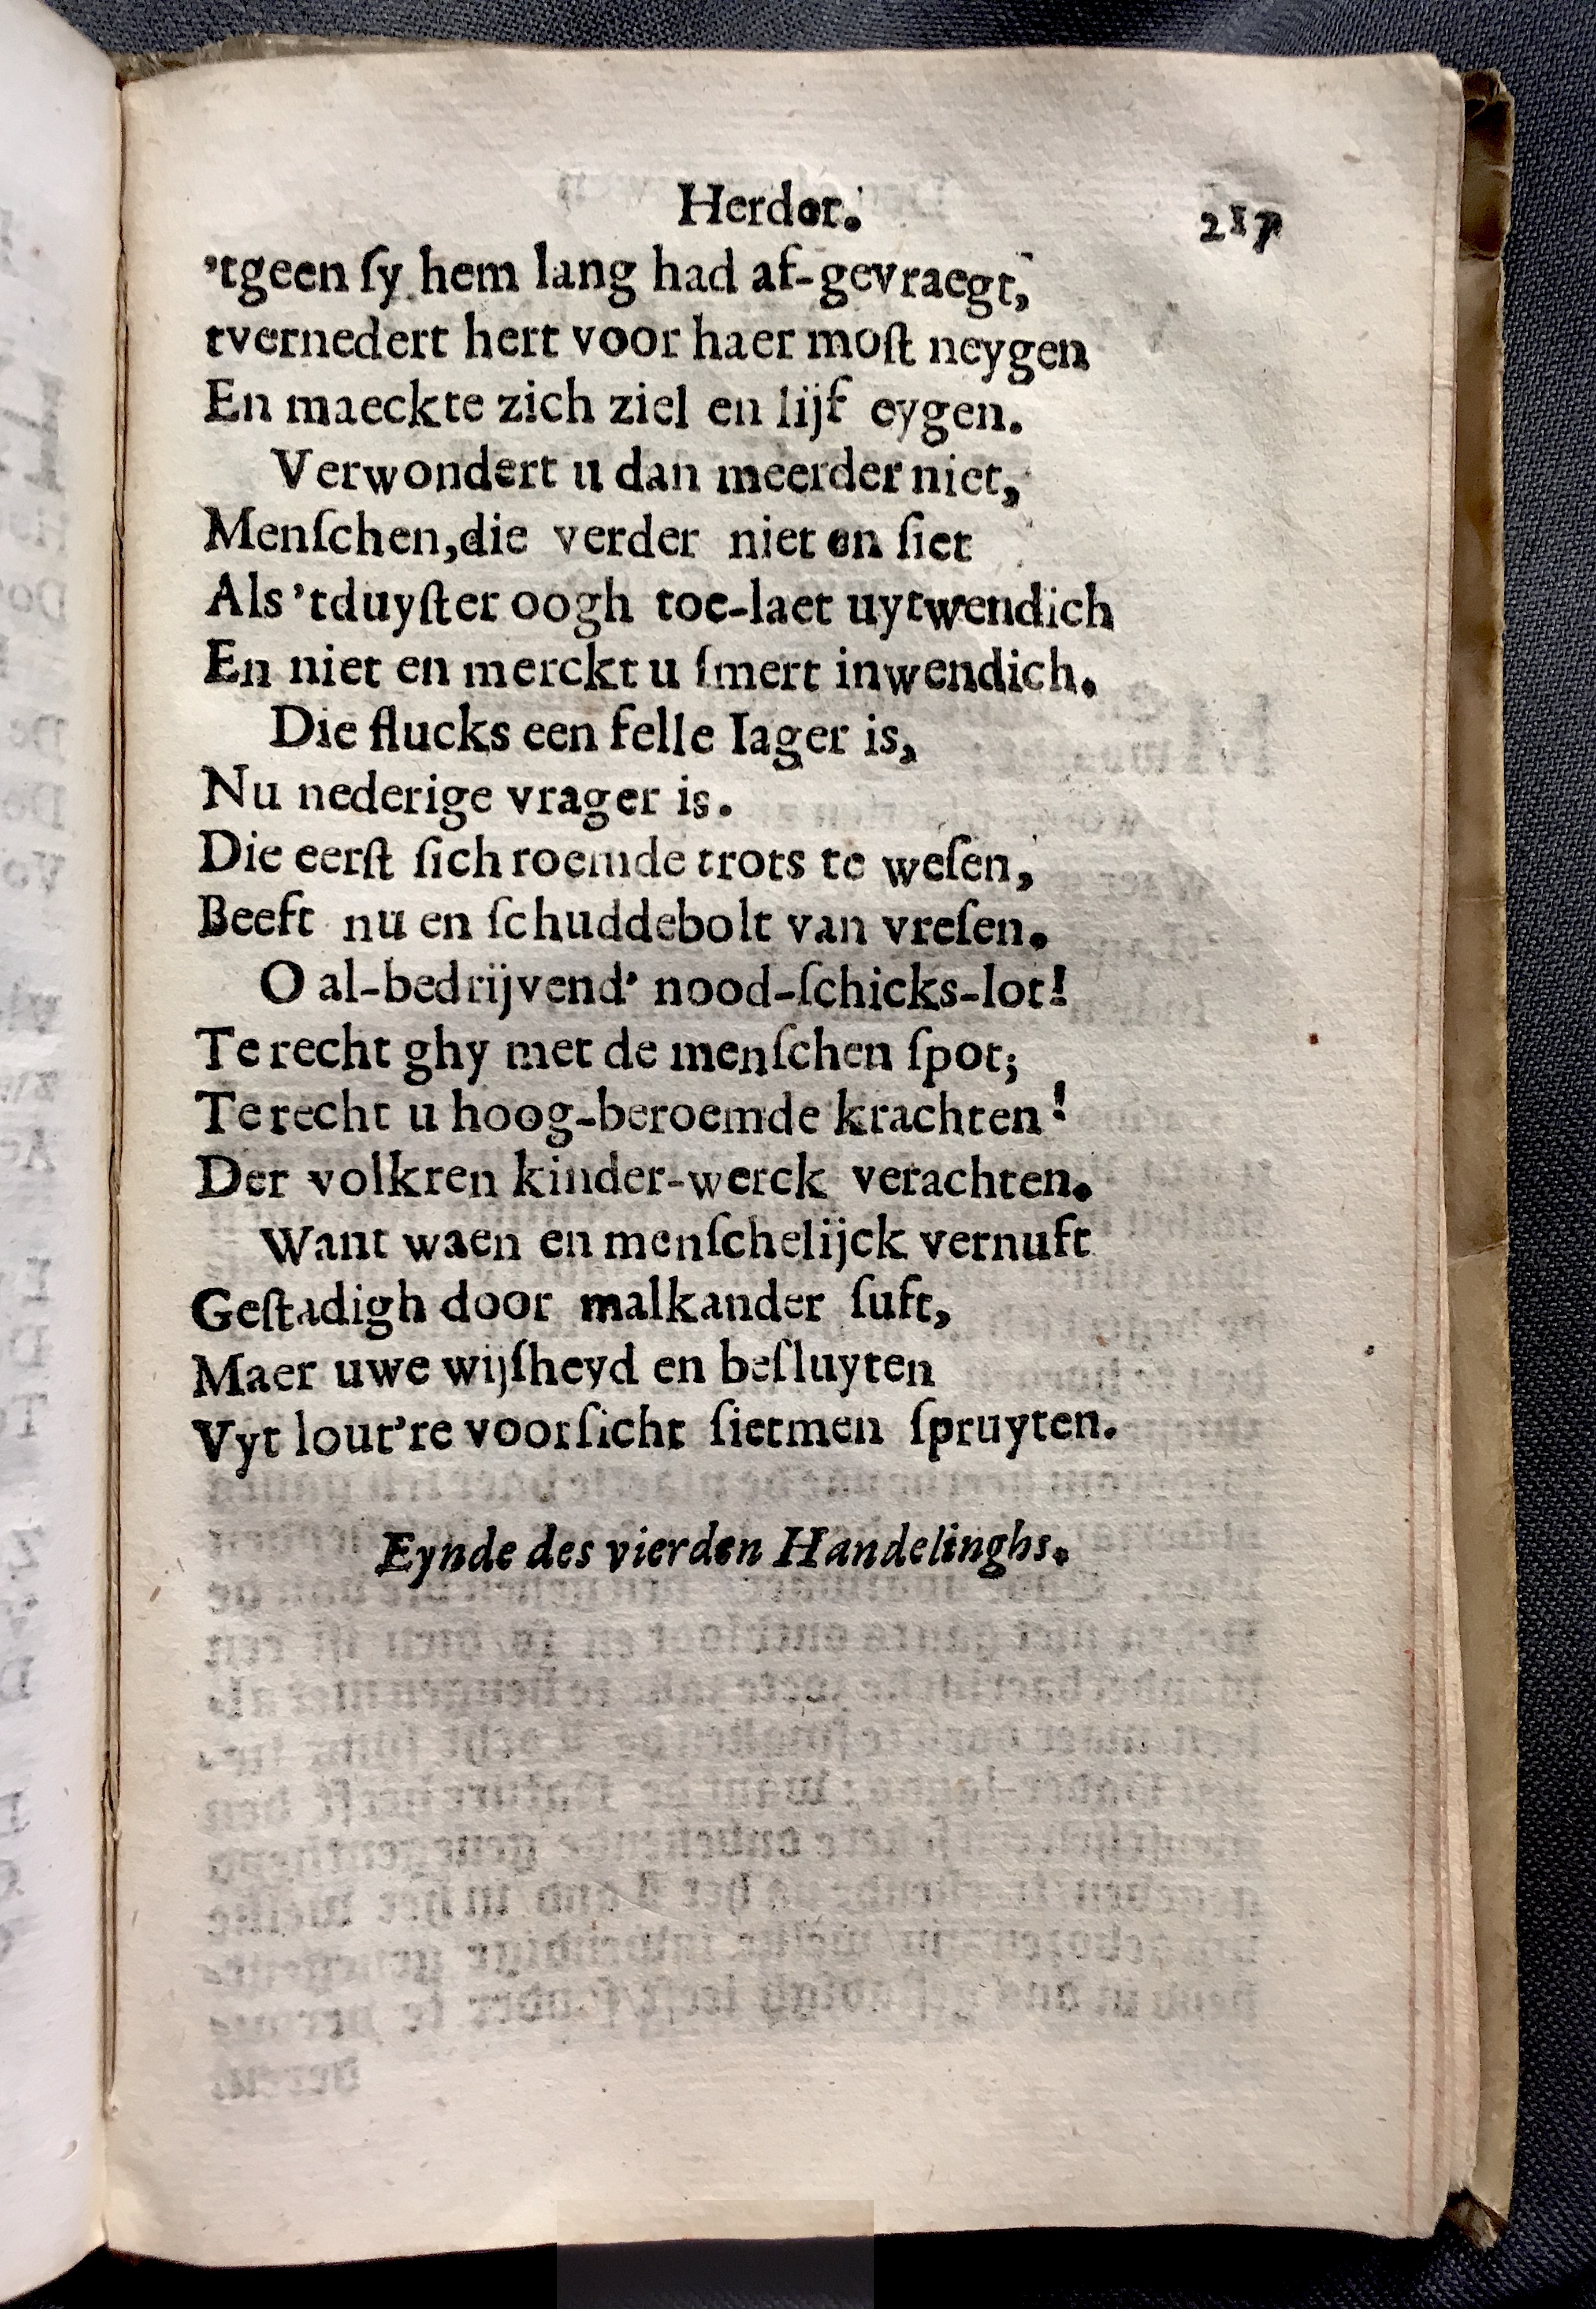 Herder. 217
’tgeen ſy hem lang had af-gevraegt,
tvernedert hert voor haer moſt neygen
En maeckte zich ziel en lijf eygen.
Verwondert u dan meerder niet,
Menſchen, die verder niet en ſiet
Als ’tduyſter oogh toe-laet uytwendich
En niet en merckt u ſmert inwendich.
Die flucks een felle Iager is,
Nu nederige vrager is.
Die eerſt ſich roemde trots te weſen,
Beeft nu en ſchuddebolt van vreſen.
O al-bedrijvend’ nood-ſchicks-lot!
Te recht ghy met de menſchen ſpot;
Te recht u hoog-beroemde krachten!
Der volkren kinder-werck verachten.
Want waen en menſchelijck vernuft
Geſtadigh door malkander ſuft,
Maer uwe wijſheyd en beſluyten
Vyt lout’re voorſicht ſietmen ſpruyten.
Eynde des vierden Handelinghs.